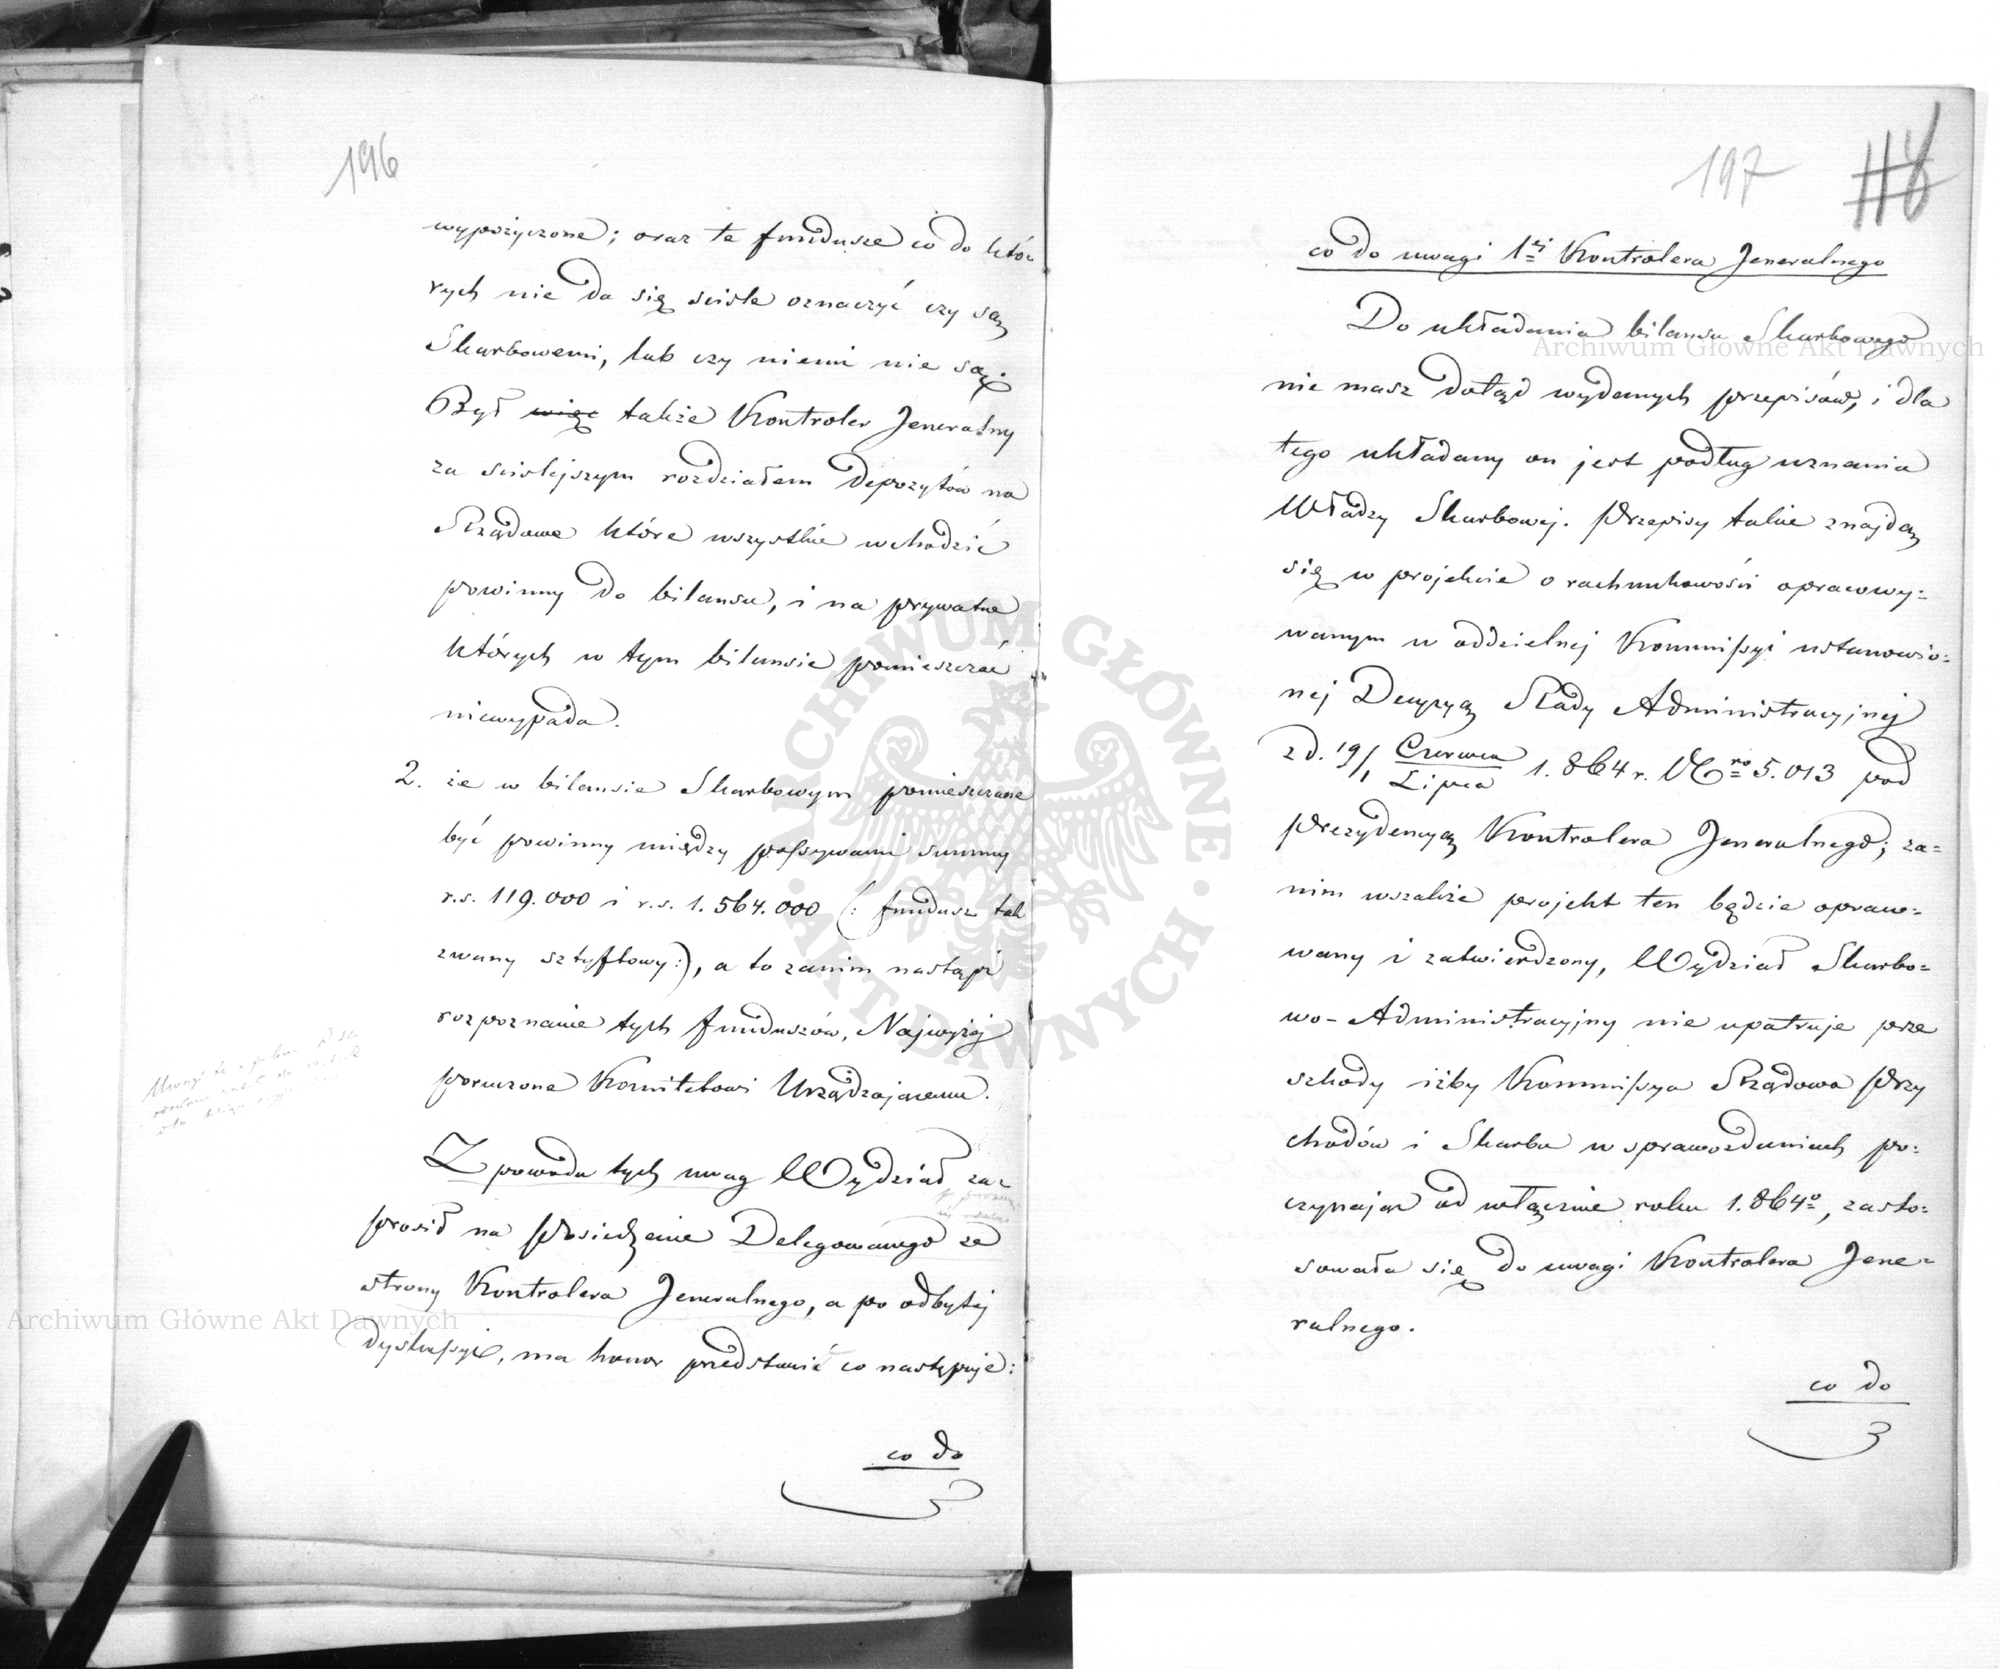 196
wypożyczone; oraz te fundusze co do któ=
rych nie da się ściśle oznaczyć czy są
Skarbowemi, lub czy niemi nie są.
Był więc także Kontroler Jeneralny
za ściślejszym rozdziałem depozytów na
Rządowe które wszystkie wchodzić
powinny do bilansu, i na prywatne
których w tym bilansie pomieszczać
niewypada.
2. że w bilansie Skarbowym pomieszczone
być powinny między passywami summy
r.s. 119.000 i r.s. 1.564.000 (: fundusz tak
zwany sztyftowy:), a to zanim nastąpi
rozpoznanie tych funduszów, Najwyżej
poruczone Komitetowi Urządzającemu.
Z powodu tych uwag Wydział za=
prosił na posiedzenie Delegowanego ze
strony Kontrolera Jeneralnego, a po odbytej
dyskussyi, ma honor przedstawić co następuje:
co do
197
118
co do uwagi 1ej Kontrolera Jeneralnego
Do układania bilansu Skarbowego
nie masz dotąd wydanych przepisów, i dla
tego układany on jest podług uznania
Władzy Skarbowej. Przepisy takie znajdą
się w projekcie o rachunkowości opracowy=
wanym w oddzielnej Kommissyi ustanowio=
nej Decyzyą Rady Administracyjnej
z d. 19/1 Czerwca/Lipca 1.864 r. Nro 5.013 pod
prezydencyą Kontrolera Jeneralnego; za=
nim wszakże projekt ten będzie opraco=
wany i zatwierdzony, Wydział Skarbo=
wo-Administracyjny nie upatruje prze
szkody iżby Kommissya Rządowa Przy
chodów i Skarbu w sprawozdaniach po=
czynając od włącznie roku 1.864o, zasto=
sowała się do uwagi Kontrolera Jene=
ralnego.
co do
Archiwum Główne Akt Dawnych
Archiwum Główne Akt Dawnych
ARCHIWUM GŁÓWNE · AKT DAWNYCH ·